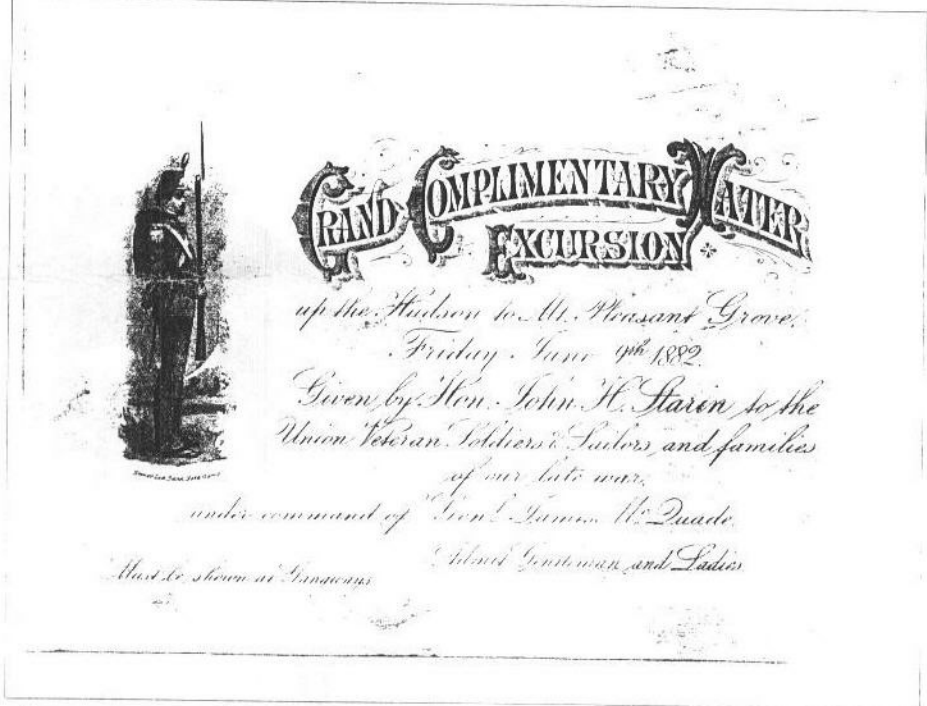 GRAND COMPLIMENTARY WATER
EXCURSION
up the Hudson to Mt. Pleasant Grove,
Friday June 9th 1882.
Given by Hon. John H. Starin to the
Union Veteran Soldiers & Sailors, and families
of our late war,
under command of Genl. James Mc Quade.
Admit Gentleman and Ladies
Must be shown at Gangways